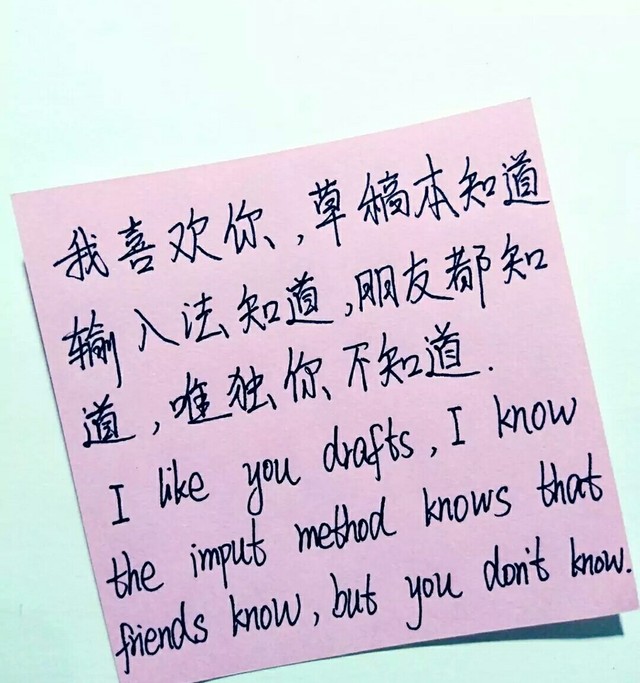 我喜欢你,草稿本知道
输入法知道,朋友都知
道,唯独你不知道.
I like you drafts, I know
the imput method knows that
friends know, but you don't know.